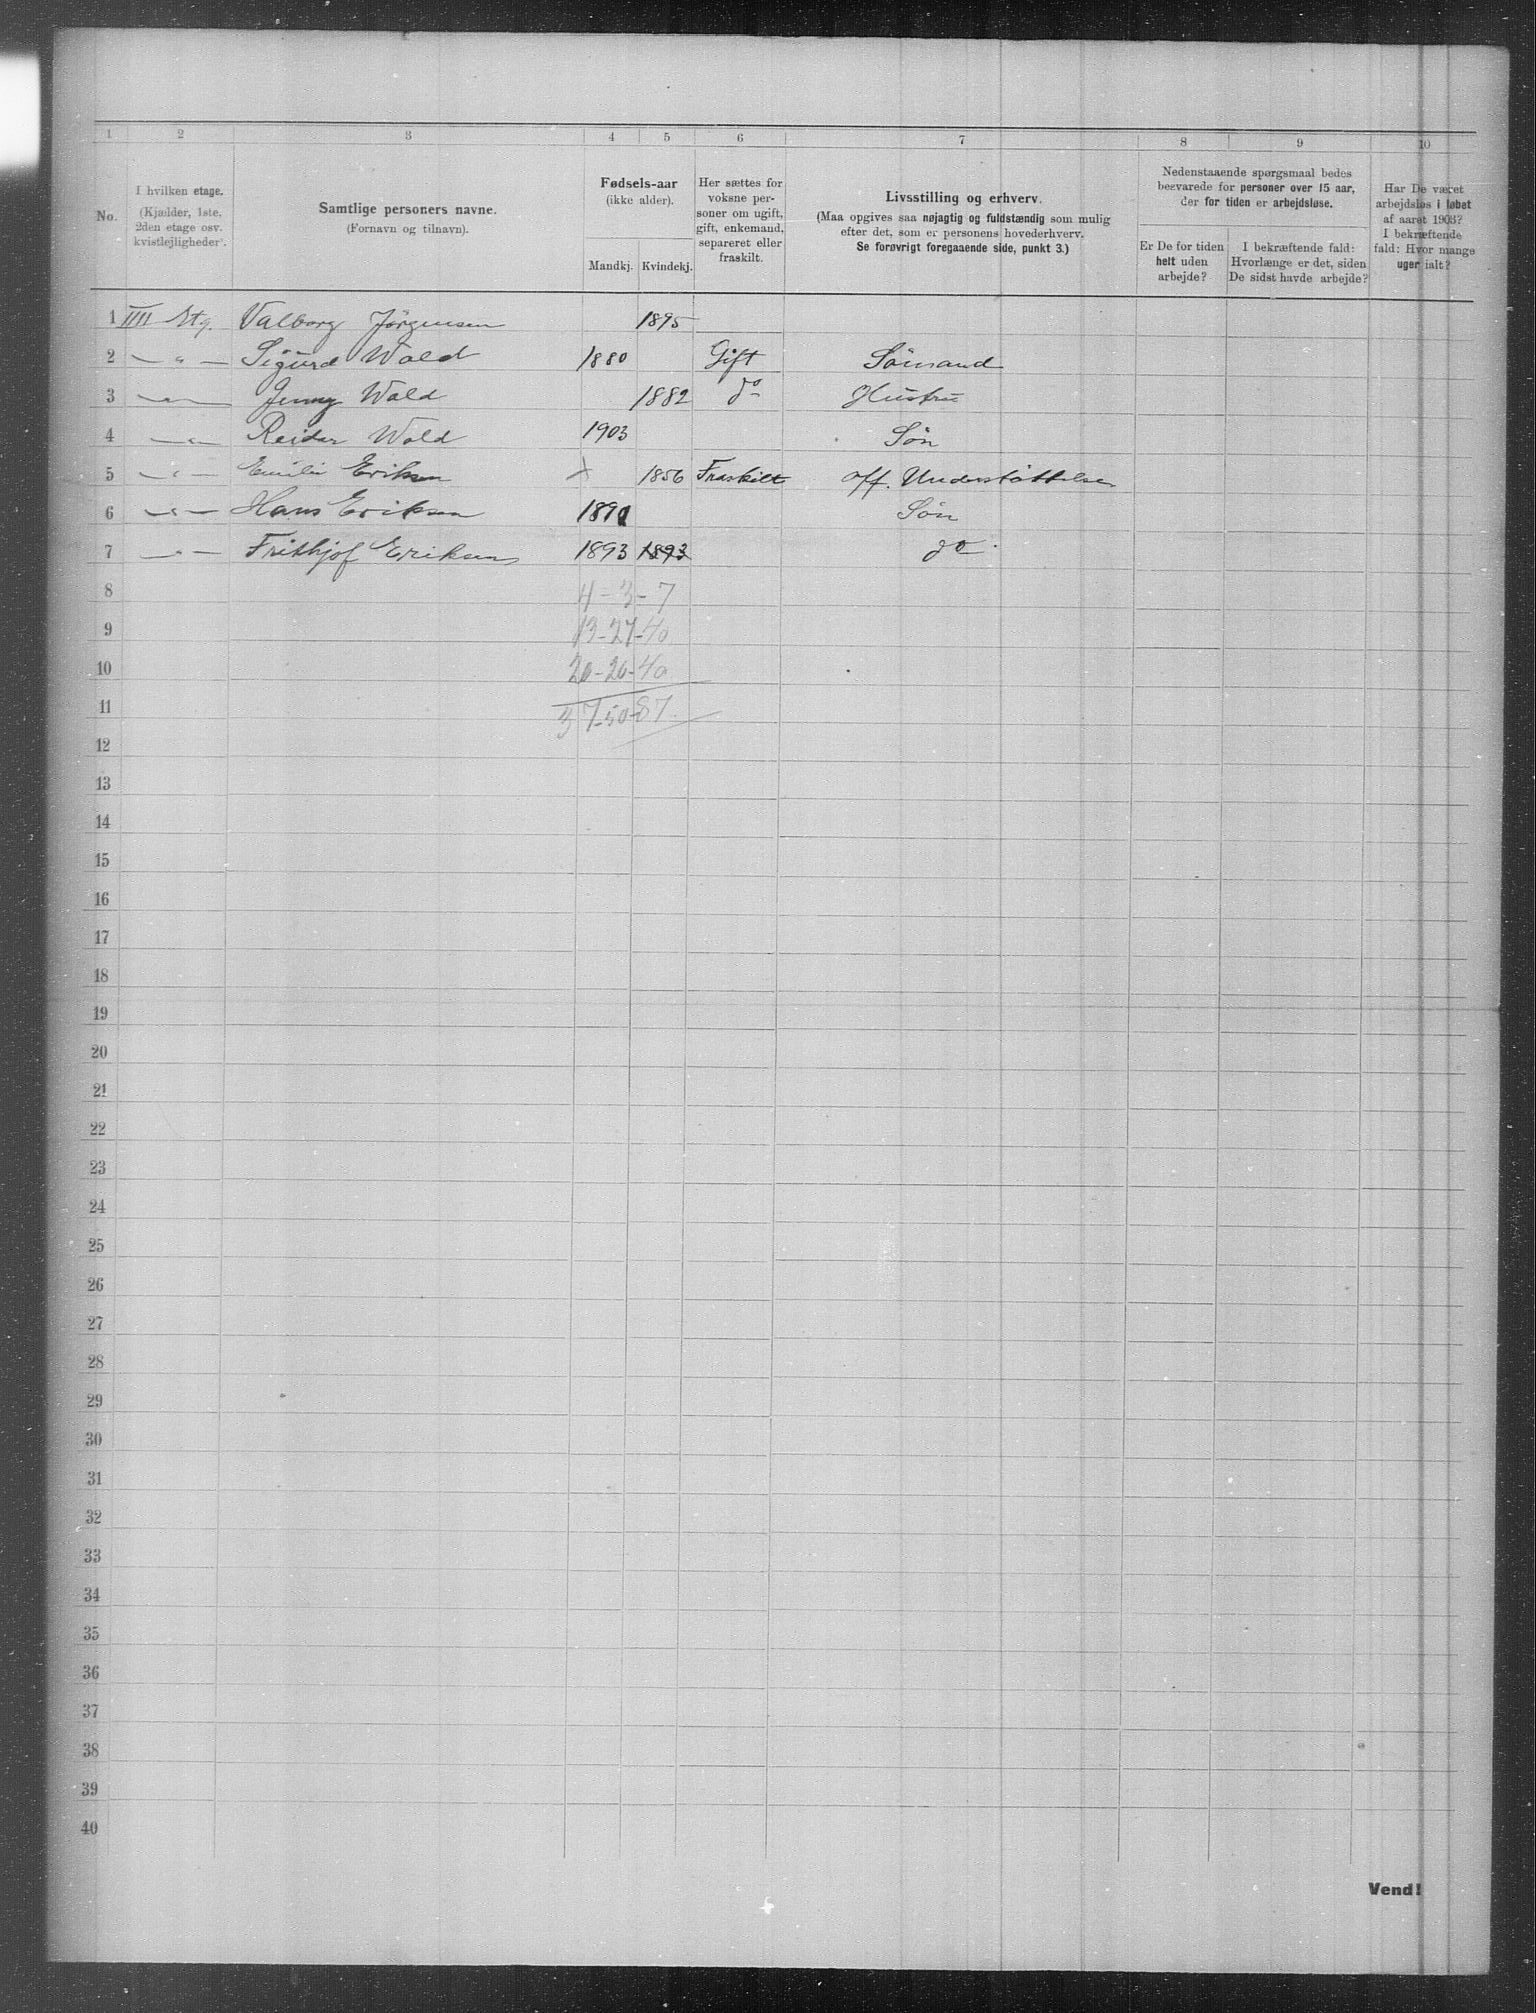 1 2 3 4 5 6 7 8 9 10
No.
I hvilken etage.
(Kjælder, 1ste,
2den etage osv.
kvistlejligheder).
Samtlige personers navne.
(Fornavn og tilnavn).
Fødsels-aar
(ikke alder).
Mandkj. Kvindekj.
Her sættes for
voksne per-
soner om ugift,
gift, enkemand,
separeret eller
fraskilt.
Livsstilling og erhverv.
(Maa opgives saa nøjagtig og fuldstændig som mulig
efter det, som er personens hovederhverv.
Se forøvrigt foregaaende side, punkt 3.)
Nedenstaaende spørgsmaal bedes
besvarede for personer over 15 aar,
der for tiden er arbejdsløse.
Er De for tiden
helt uden
arbejde?
I bekræftende fald:
Hvorlænge er det, siden
De sidst havde arbejde?
Har De været
arbejdsløs i løbet
af aaret 1903?
I bekræftende
fald: Hvor mange
uger ialt?
1 IIII Etg. Valborg Jörgensen 1895
2 — " — Sigurd Wold 1880 Gift Sömand
3 — " — Jenny Wold 1882 do Hustru
4 — " — Reidar Wold 1903 Sön
5 — " — Emilie Eriksen 1856 Fraskilt off. Understöttelse
6 — " — Hans Eriksen 1891 Sön
7 — " — Frithjof Eriksen 1893 1893 do
8 4-3-7
9 13-27-40
10 20-20-40
11 37-50-87
12
13
14
15
16
17
18
19
20
21
22
23
24
25
26
27
28
29
30
31
32
33
34
35
36
37
38
39
40
Vend!